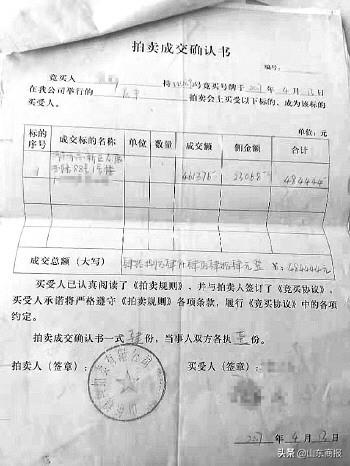 拍卖成交确认书
编号:
竞买人 持 号竞买号牌于 2007 年 4 月 13 日
在我公司举行的 拍卖会上买受以下标的、成为该标的
买受人。
单位:元
标的序号 成交标的名称 单位 数量 成交额 佣金额 合计
1 461376 23068 484444
成交总额(大写) ¥:484444元
买受人已认真阅读了《拍卖规则》、并与拍卖人签订了《竞买协议》,
买受人承诺将严格遵守《拍卖规则》各项条款,履行《竞买协议》中的各项
约定。
拍卖成交确认书一式肆份,当事人双方各执 份。
拍卖人(签章): 买受人(签章):
2007 年 4 月 13 日
头条 @山东商报